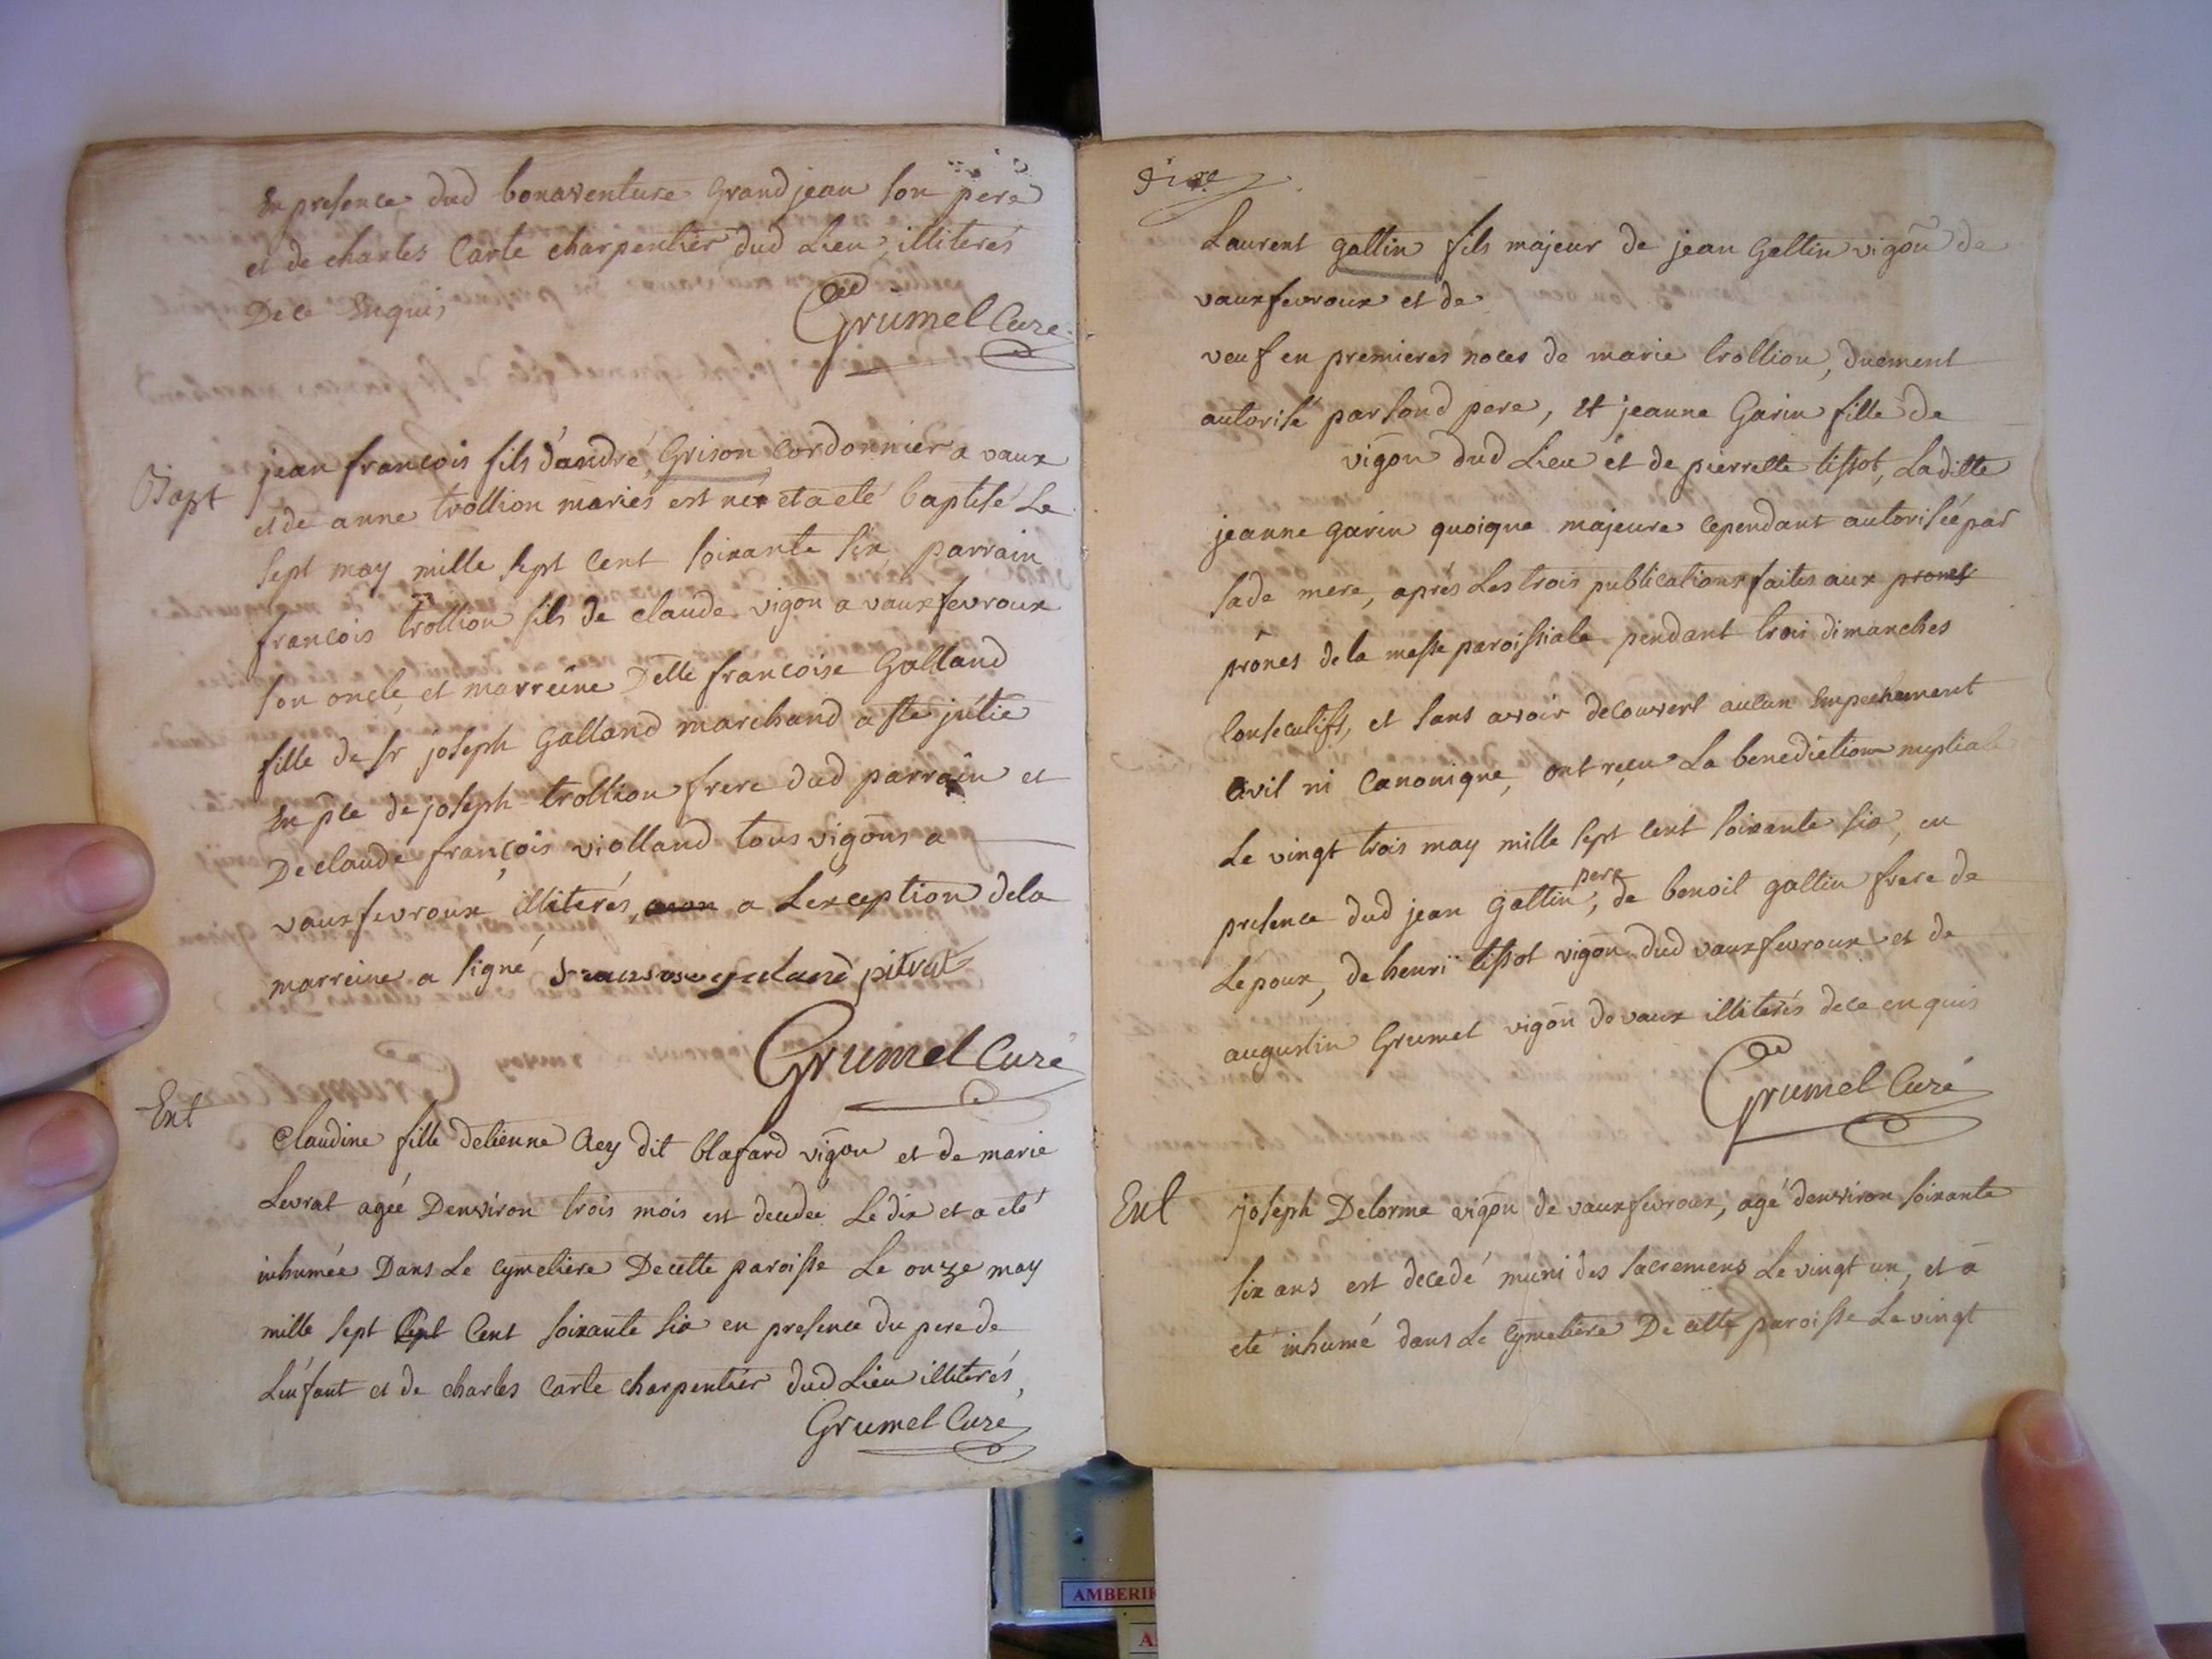 En presence dud bonaventure Grandjean son pere
et de charles Carte charpentier dud Lieu, illiterés
De ce Enquis
Grumel Curé
Bapt
jean francois fils d'andré Grison Cordonnier a vaux
et de anne trollion mariés est né et a eté baptisé Le
sept may mille sept cent soixante six, parrain
francois trollion fils de claude vigōn a vauxfevroux
son oncle, et marreine Delle francoise Galland
fille de sr joseph Galland marchand a ste julie
En pīce de joseph trollion frere dud parrain et
De claude françois violland tous vigōns a
vauxfevroux illiterés, a L'exception dela
marreine a signé pitrat
Grumel Curé
Ent
Claudine fille detienne Rey dit blafard vigōn et de marie
Levrat agée Denviron trois mois est decedée Le dix et a eté
inhumée Dans Le cymetiere De cette paroisse Le onze may
mille sept cent soixante six en presence du pere de
L'enfant et de charles Carte charpentier dud Lieu illiterés,
Grumel Curé
Laurent gallin fils majeur de jean Gallin vigōn de
vauxfevroux et de
veuf en premieres noces de marie trollion, duement
autorisé par sond pere, Et jeanne Garin fille de
vigōn dud Lieu et de pierrette tissot, Laditte
jeanne garin quoique majeure cependant autorisée par
sade mere, aprés Les trois publications faites aux prones
prônes de la messe paroissiale pendant trois dimanches
consecutifs, et sans avoir decouvert aucun Empechement
Civil ni Canonique, ont reçu La benediction nuptiale
Le vingt trois may mille sept cent soixante six, en
presence dud jean gallin pere, de benoit gallin frere de
Lepoux, de henri tissot vigōn dud vauxfevroux et de
augustin Grumel vigōn de vaux illiterés de ce enquis
Grumel Curé
Ent
joseph Delorme vigōn de vauxfevroux, agé denviron soixante
six ans est decedé muni des sacremens Le vingt un, et a
eté inhumé dans Le Cymetiere De cette paroisse Le vingt
AMBERI
A